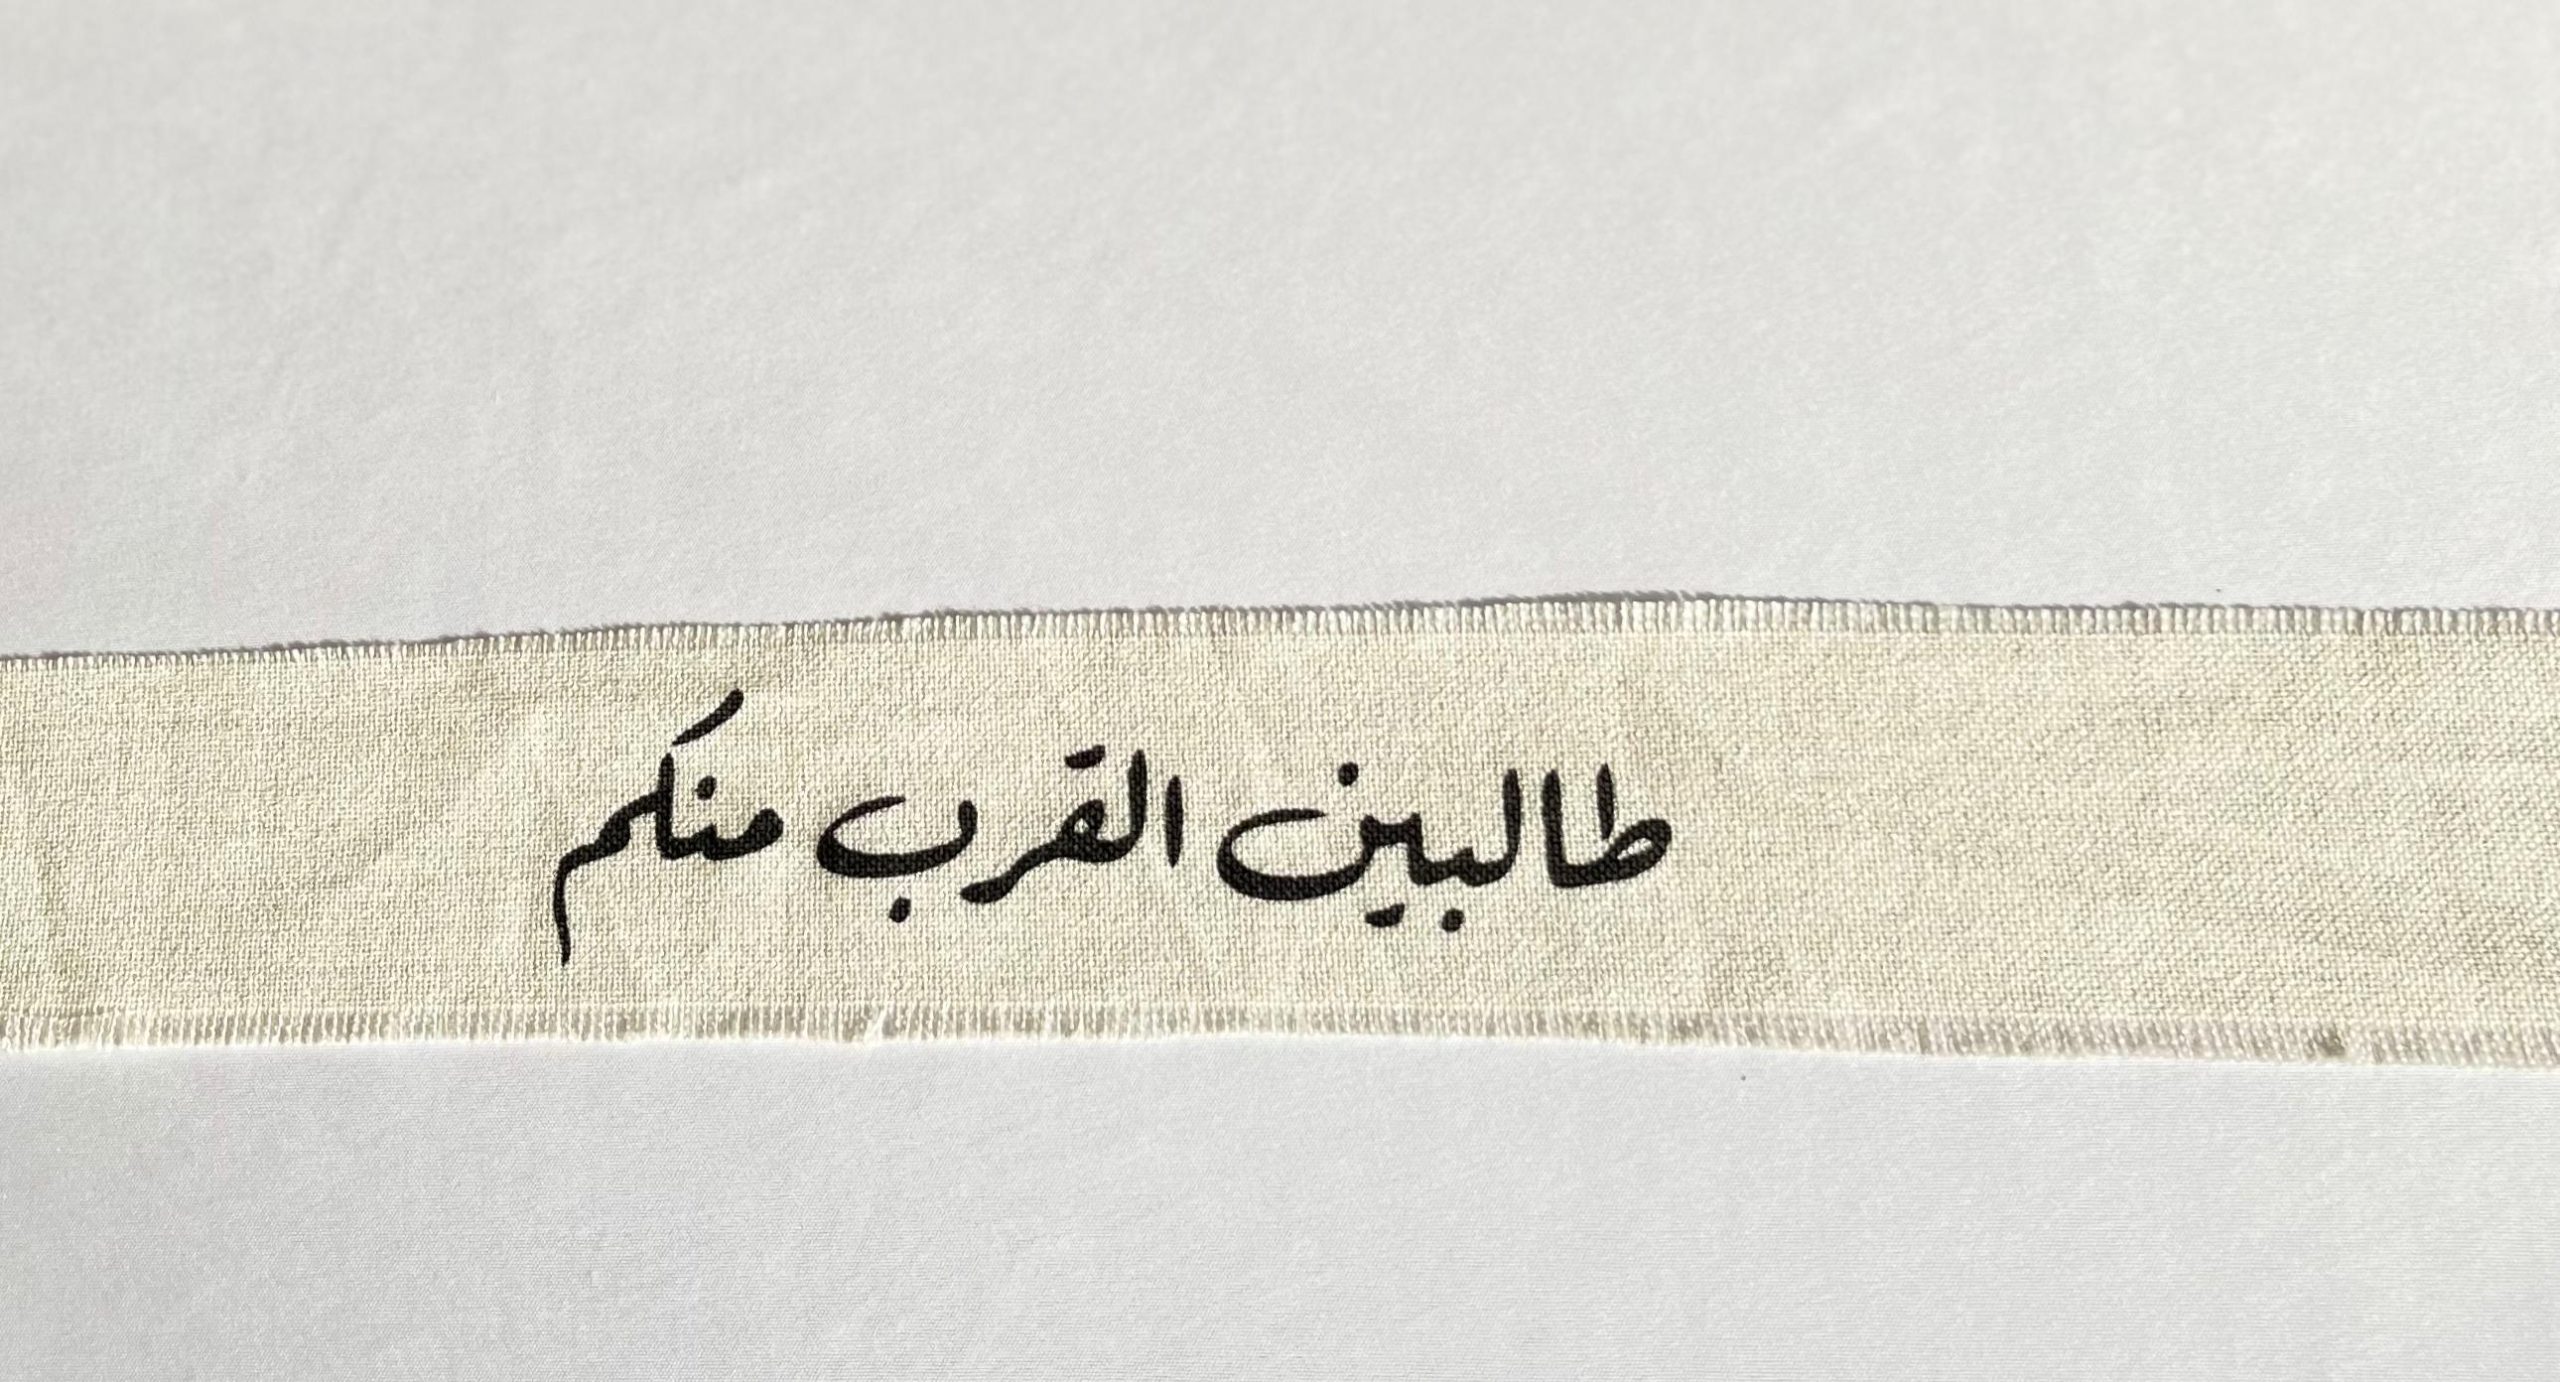 طالبين القرب منكم